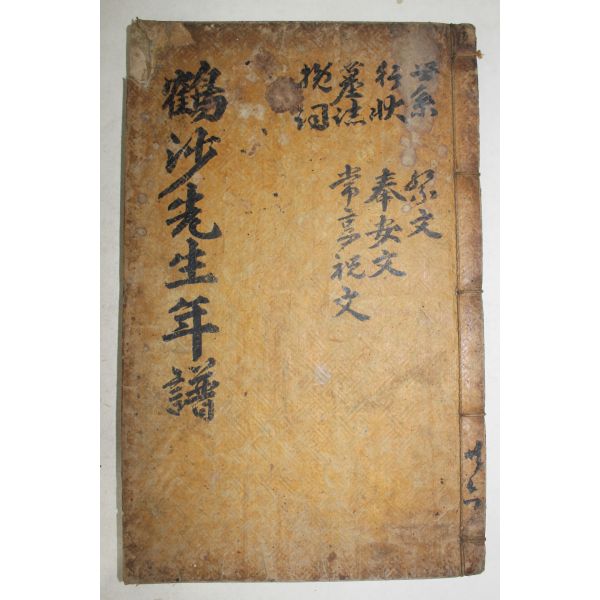 世系
行狀
墓誌
挽詞
祭文
奉安文
常享祝文
鶴沙先生年譜
共六